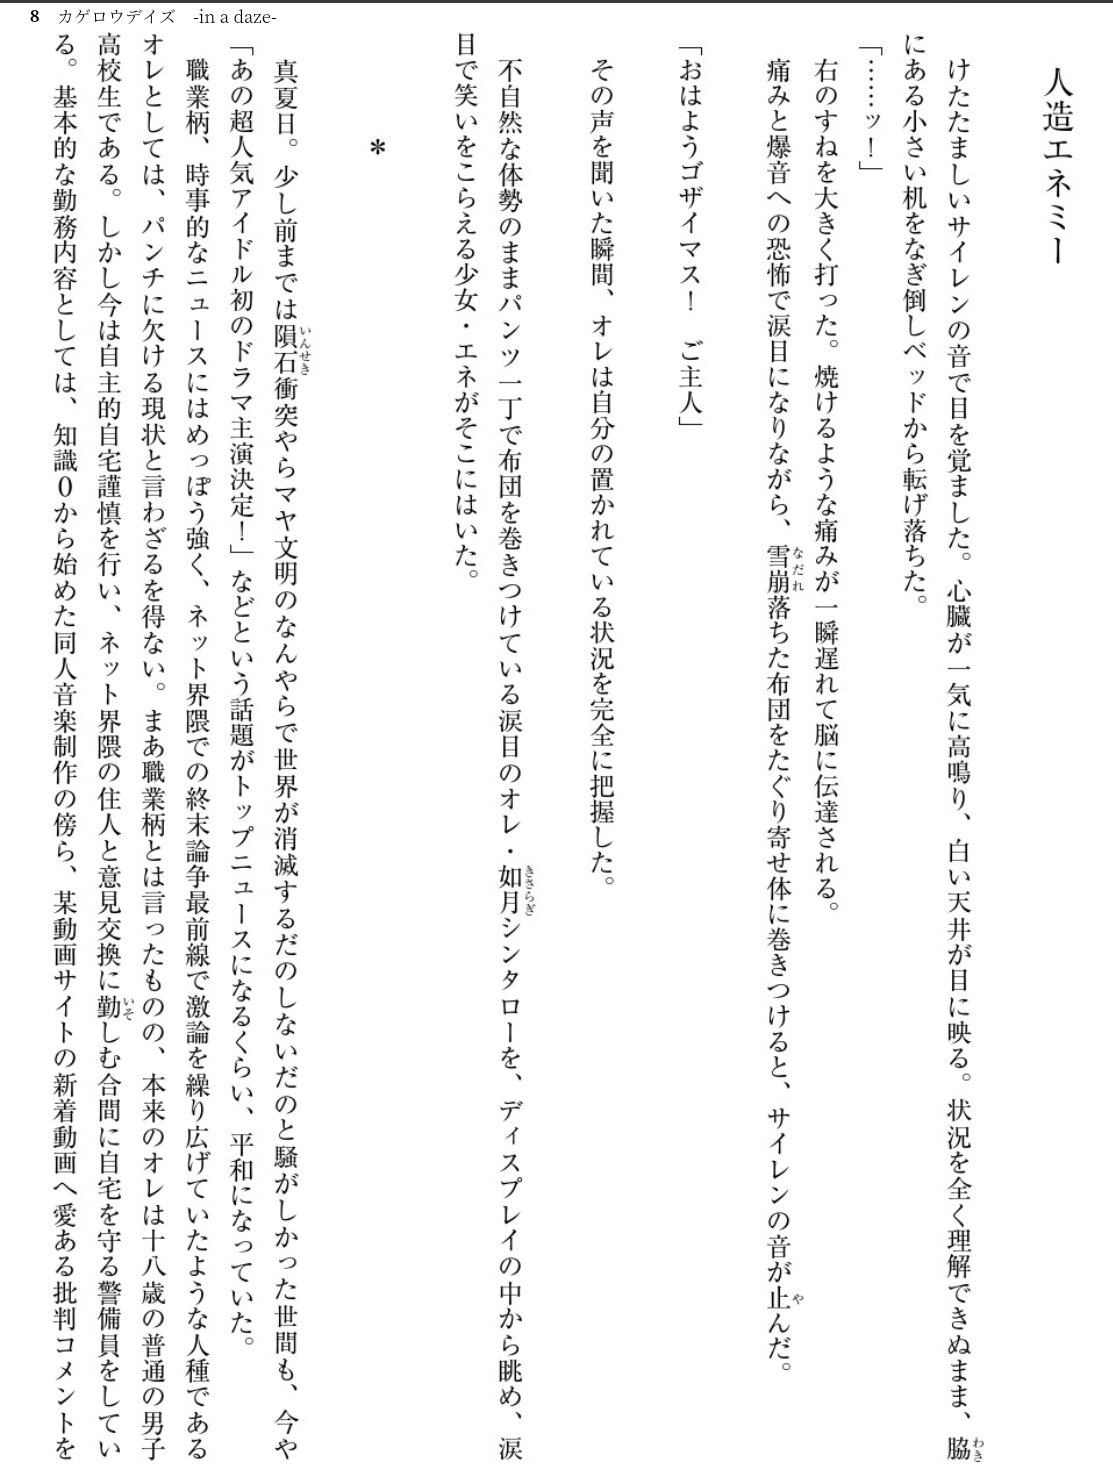 8 カゲロウデイズ -in a daze-
人造エネミー
けたたましいサイレンの音で目を覚ました。心臓が一気に高鳴り、白い天井が目に映る。状況を全く理解できぬまま、脇
わき
にある小さい机をなぎ倒しベッドから転げ落ちた。
「……ッ！」
右のすねを大きく打った。焼けるような痛みが一瞬遅れて脳に伝達される。
痛みと爆音への恐怖で涙目になりながら、雪崩落ちた布団をたぐり寄せ体に巻きつけると、サイレンの音が止んだ。
なだれ
や
「おはようゴザイマス！　ご主人」
その声を聞いた瞬間、オレは自分の置かれている状況を完全に把握した。
不自然な体勢のままパンツ一丁で布団を巻きつけている涙目のオレ・如月シンタローを、ディスプレイの中から眺め、涙
きさらぎ
目で笑いをこらえる少女・エネがそこにはいた。
＊
真夏日。少し前までは隕石衝突やらマヤ文明のなんやらで世界が消滅するだのしないだのと騒がしかった世間も、今や
いんせき
「あの超人気アイドル初のドラマ主演決定！」などという話題がトップニュースになるくらい、平和になっていた。
職業柄、時事的なニュースにはめっぽう強く、ネット界隈での終末論争最前線で激論を繰り広げていたような人種である
オレとしては、パンチに欠ける現状と言わざるを得ない。まあ職業柄とは言ったものの、本来のオレは十八歳の普通の男子
高校生である。しかし今は自主的自宅謹慎を行い、ネット界隈の住人と意見交換に勤しむ合間に自宅を守る警備員をしてい
いそ
る。基本的な勤務内容としては、知識０から始めた同人音楽制作の傍ら、某動画サイトの新着動画へ愛ある批判コメントを